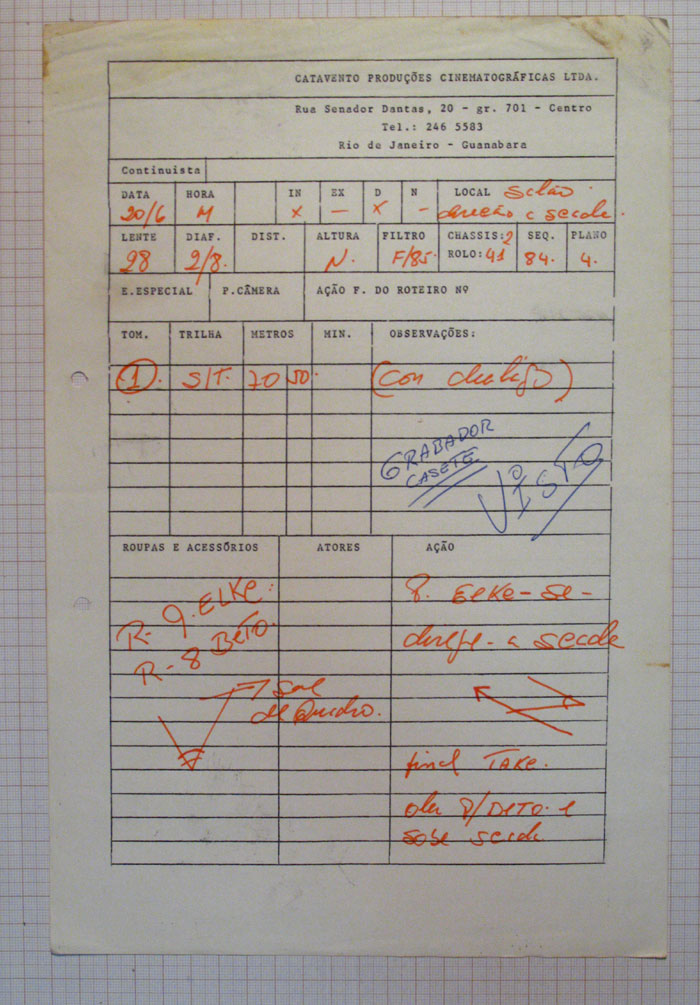 CATAVENTO PRODUÇÕES CINEMATOGRÁFICAS LTDA.
Rua Senador Dantas, 20 - gr. 701 - Centro
Tel.: 246 5583
Rio de Janeiro - Guanabara
Continuista
DATA HORA IN EX D N LOCAL Salão
20/6 M x — x –
LENTE DIAF. DIST. ALTURA FILTRO CHASSIS: 2 SEQ. PLANO
28 2/8. N. F/85. ROLO: 41 84. 4.
E.ESPECIAL P.CÂMERA AÇÃO F. DO ROTEIRO Nº
TOM. TRILHA METROS MIN. OBSERVAÇÕES:
1. S/T. 70 50. (con )
GRABADOR
CASETE
VISTO
ROUPAS E ACESSÓRIOS ATORES AÇÃO
R- 9. ELKE.
R- 8 BETO.
8. ELKE - se -
Sae
de Quadro.
final TAKE.
P/BETO. e
sobe